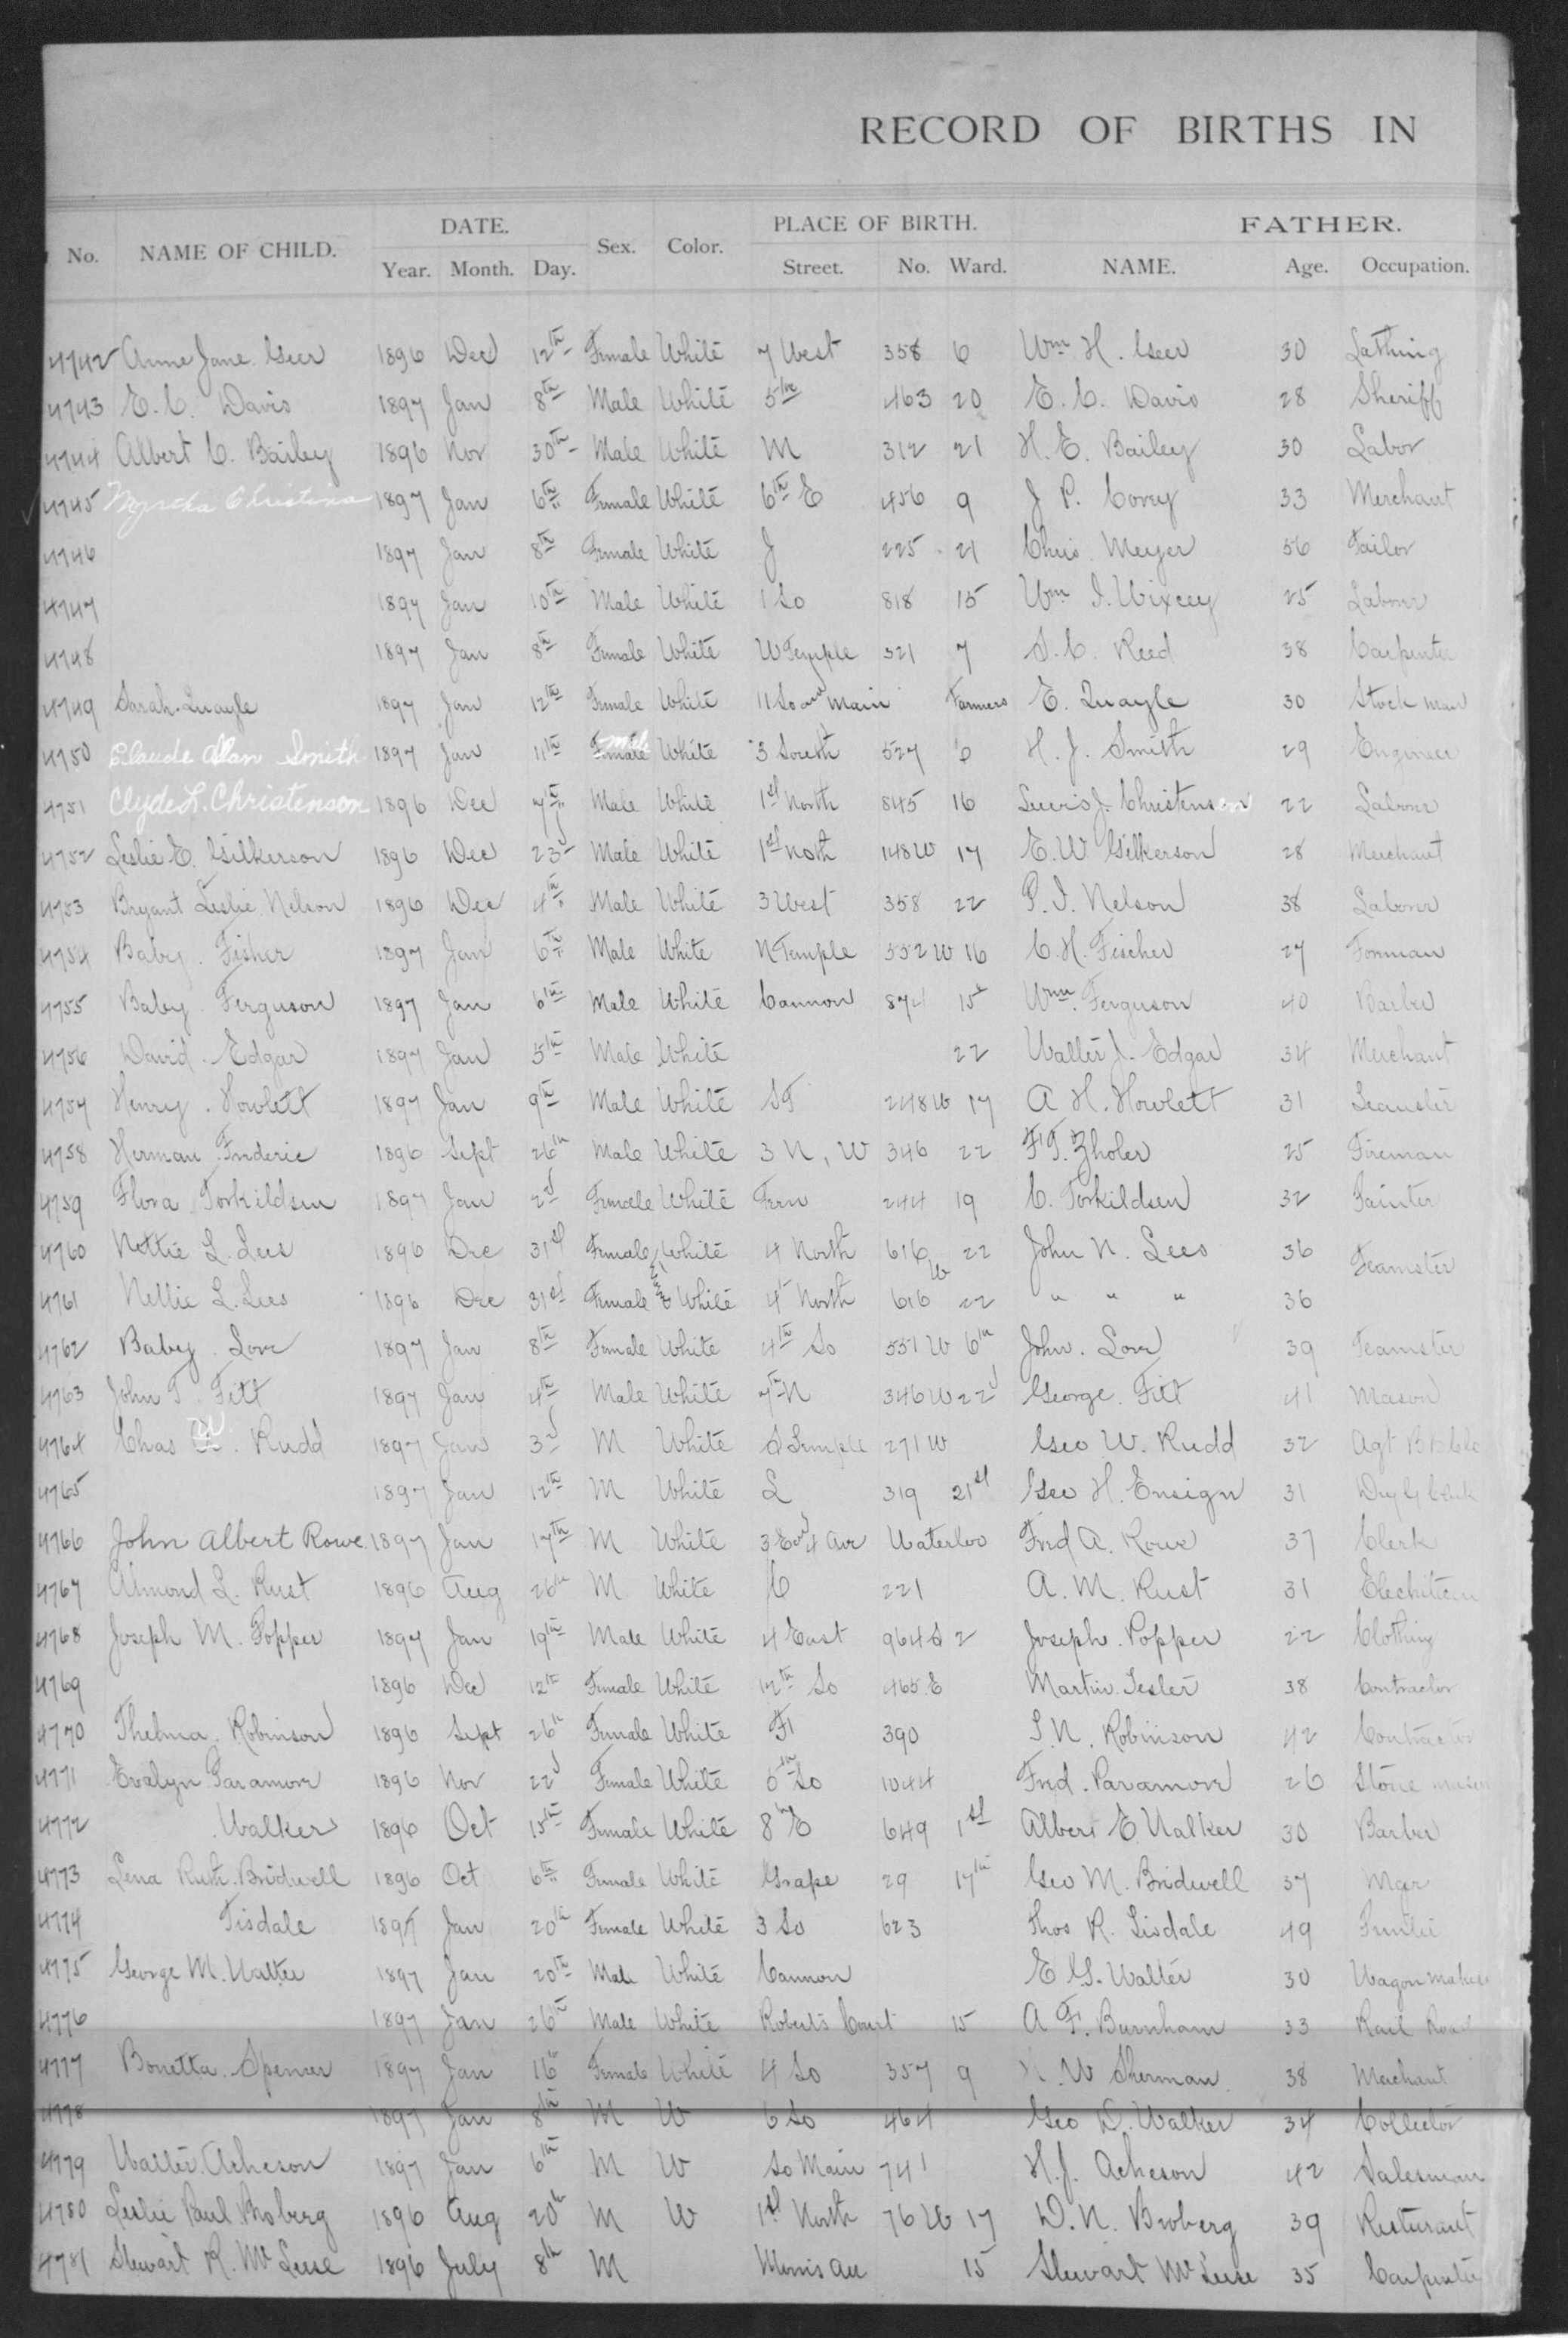 RECORD OF BIRTHS IN
No. NAME OF CHILD. DATE. Sex. Color. PLACE OF BIRTH. FATHER.
Year. Month. Day. Street. No. Ward. NAME. Age. Occupation.
4742 Anne Jane Geer 1896 Dec 12th Female White 7 West 358 6 Wm H. Geer 30 Lathing
4743 E. C. Davis 1897 Jan 8th Male White 5th 463 20 E. C. Davis 28 Sheriff
4744 Albert C. Bailey 1896 Nov 30th Male White M 312 21 H. E. Bailey 30 Labor
4745 Myrtha Christina 1897 Jan 6th Female White 6th E 456 9 J. P. Corey 33 Merchant
4746 1897 Jan 8th Female White J 225 21 Chris Meyer 56 Tailor
4747 1897 Jan 10th Male White 1 So 818 15 Wm I. Wixcey 25 Laborer
4748 1897 Jan 8th Female White W Temple 321 7 S. C. Reed 38 Carpenter
4749 Sarah Quayle 1897 Jan 12th Female White 11 So and Main Farmers E. Quayle 30 Stock man
4750 Claude Alan Smith 1897 Jan 11th male White 3 South 527 6 H. J. Smith 29 Engineer
4751 Clyde L. Christenson 1896 Dec 7th Male White 1st North 845 16 Lewis J. Christenson 22 Laborer
4752 Leslie E. Gilkerson 1896 Dec 23d Male White 1st North 148 W 17 E. W. Gilkerson 28 Merchant
4753 Bryant Leslie Nelson 1896 Dec 4th Male White 3 West 358 22 P. I. Nelson 38 Laborer
4754 Baby Fisher 1897 Jan 6th Male White N Temple 552 W 16 C. H. Fischer 27 Forman
4755 Baby Ferguson 1897 Jan 6th Male White Cannon 874 15 Wm. Ferguson 40 Barber
4756 David Edgar 1897 Jan 5th Male White 22 Walter J. Edgar 34 Merchant
4757 Henry Howlett 1897 Jan 9th Male White S T 248 W 17 A. H. Howlett 31 Teamster
4758 Herman Frederic 1896 Sept 26th Male White 3 N, W 346 22 F. T. Zholer 25 Fireman
4759 Flora Torkildsen 1897 Jan 2d Female White Fern 244 19 C. Torkildsen 32 Painter
4760 Nettie L. Lees 1896 Dec 31st Female White 4 North 616 W 22 John N. Lees 36 Teamster
4761 Nellie L. Lees 1896 Dec 31st Female White 4 North 616 22 " " " 36
4762 Baby Love 1897 Jan 8th Female White 4th So 551 W 6th John Love 39 Teamster
4763 John T. Fitt 1897 Jan 4th Male White 7th N 346 W 22d George Fitt 41 Mason
4764 Chas Rudd 1897 Jan 3d M White S Temple 271 W Geo W. Rudd 32 Agt
4765 1897 Jan 12th M White L 319 21st Geo H. Ensign 31 Dry G Clerk
4766 John Albert Rowe 1897 Jan 17th M White 3 E and 4 Ave Waterloo Fred A. Rowe 37 Clerk
4767 Almond L. Rust 1896 Aug 26th M White C 221 A. M. Rust 31
4768 Joseph M. Popper 1897 Jan 19th Male White 4 East 964 S 2 Joseph Popper 22 Clothing
4769 1896 Dec 12th Female White 12th So 465 E Martin Tesler 38 Contractor
4770 Thelma Robinson 1896 Sept 26th Female White F 390 S. N. Robinson 42 Contractor
4771 Evalyn Paramore 1896 Nov 22d Female White So 1044 Fred Paramore 26 Stone mason
4772 Walker 1896 Oct 15th Female White 8th E 649 1st Albert E Walker 30 Barber
4773 Lena Ruth Bridwell 1896 Oct 6th Female White Grape 29 17th Geo M. Bridwell 37 Mgr
4774 Tisdale 1897 Jan 20th Female White 3 So 623 Thos R. Tisdale 49
4775 George M. Walter 1897 Jan 20th Male White Cannon E. G. Walter 30 Wagon maker
4776 1897 Jan 26th Male White Roberts Court 15 A. F. Burnham 33 Rail Road
4777 Bonetta Spencer 1897 Jan 16 Female White 4 So 357 9 W Sherman 38 Merchant
4778 1897 Jan 8th M W 6 So 464 Geo D. Walker 34 Collector
4779 Walter Acheson 1897 Jan 6th M W So Main 741 H. J. Acheson 42 Salesman
4780 Leslie Paul Broberg 1896 Aug 20th M W 1st North 76 W 17 D. N. Broberg 39 Resturant
4781 Stewart R. Mc Leese 1896 July 8th M Morris Ave 15 Stewart Mc Leese 35 Carpenter